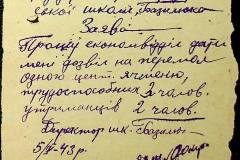 ської школи Базилюка
Заява
Прошу економвідділ дати
мені дозвіл на перемол
одного цент. ячменю,
трудоспособних 2 чолов.
утриманців 2 чолов.
Директор шк.
5/IV-43 р.